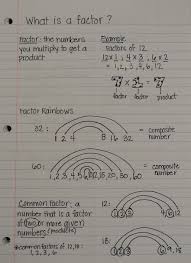 What is a factor?
factor: the numbers
you multiply to get a
product
Example:
factors of 12
12x1; 4x3; 6x2
= 1, 2, 3, 4, 6, 12
factor factor product
Factor Rainbows
32:
1 2 4 8 16 32
= composite
number
60:
1,2,3,4,5,6,10,12,15,20,30,60
= composite
number
Common factor: a
number that is a factor
of two or more given
numbers (products)
*common factors of 12, 18:
1, 2, 3, 6
12:
1 2 3 4 6 12
18:
1 2 3 6 9 18